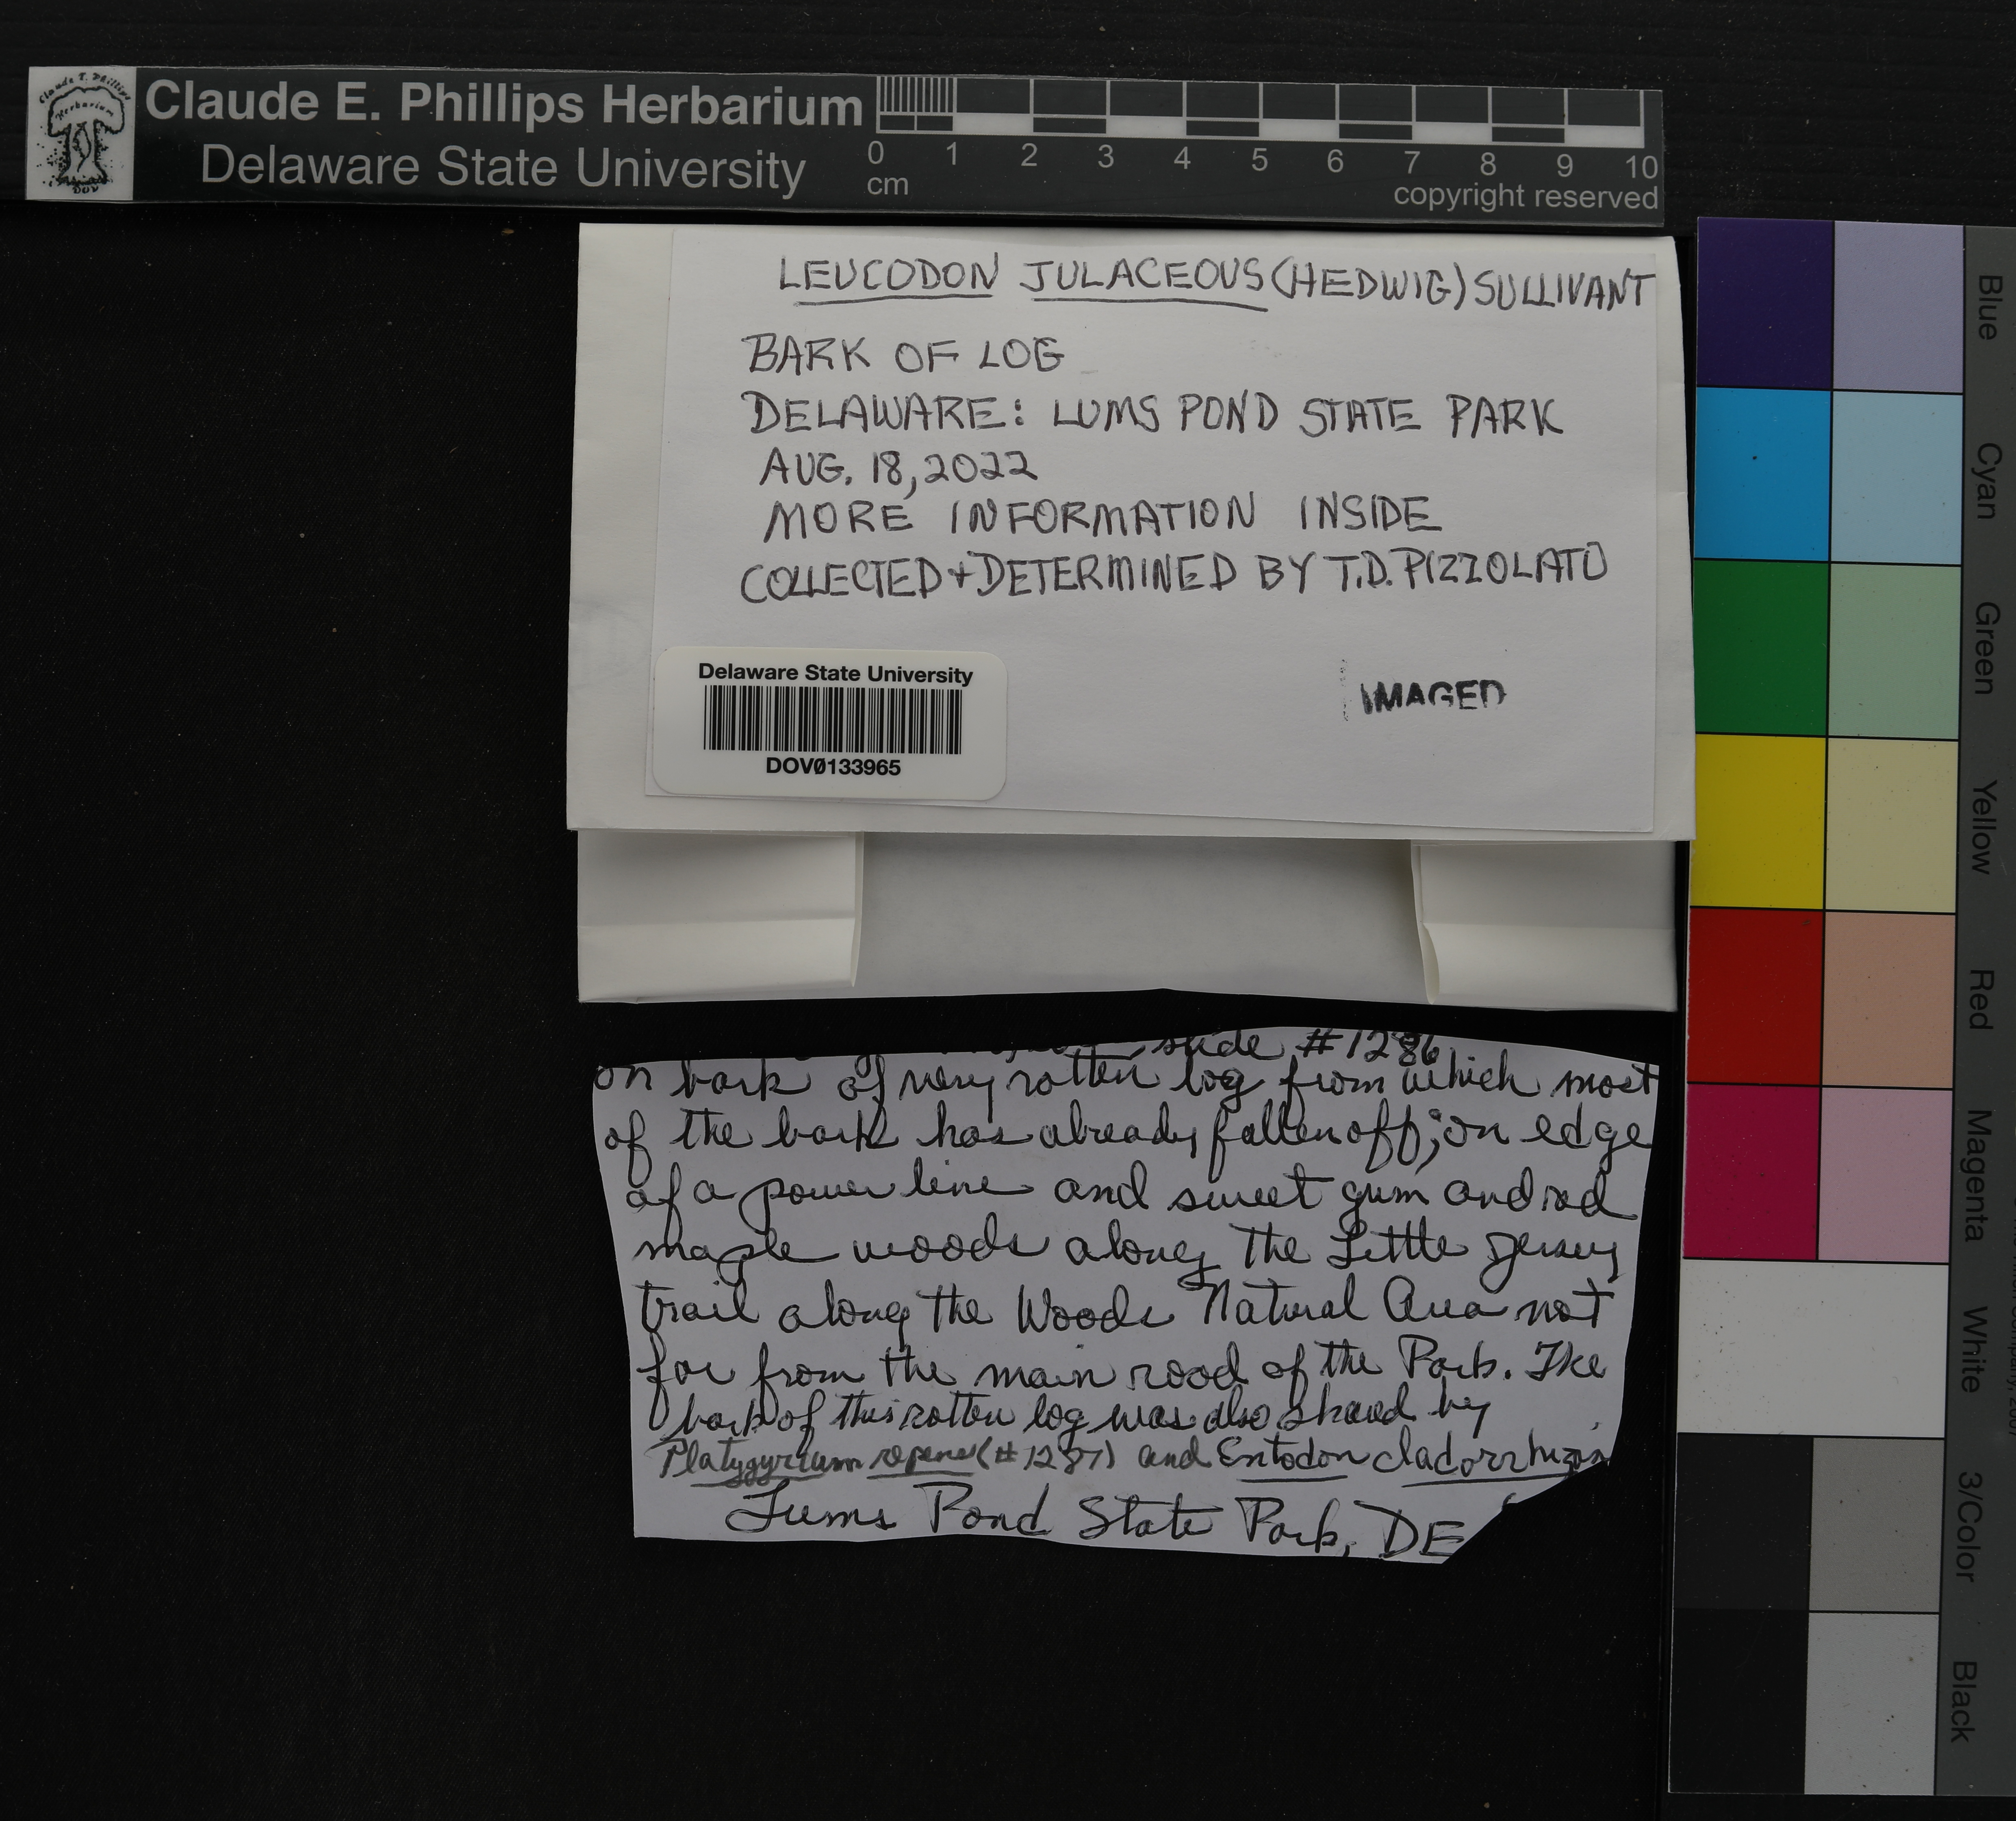 Claude T. Phillips
Herbarium
DOV
Claude E. Phillips Herbarium
Delaware State University
0 1 2 3 4 5 6 7 8 9 10
cm
copyright reserved
LEUCODON JULACEOUS (HEDWIG) SULLIVANT
BARK OF LOG
DELAWARE: LUMS POND STATE PARK
AUG. 18, 2022
MORE INFORMATION INSIDE
COLLECTED + DETERMINED BY T.D. PIZZOLATO
Delaware State University
DOV0133965
IMAGED
slide #1286
on bark of very rotten log from which most
of the bark has already fallen off; on edge
of a power line and sweet gum and red
maple woods along the Little Jersey
trail along the Woods Natural Area not
far from the main road of the Park. The
bark of this rotten log was also shared by
Platygyrium repens (#1287) and Entodon cladorrhizans
Lums Pond State Park, DE
Blue
Cyan
Green
Yellow
Red
Magenta
White
3/Color
Black